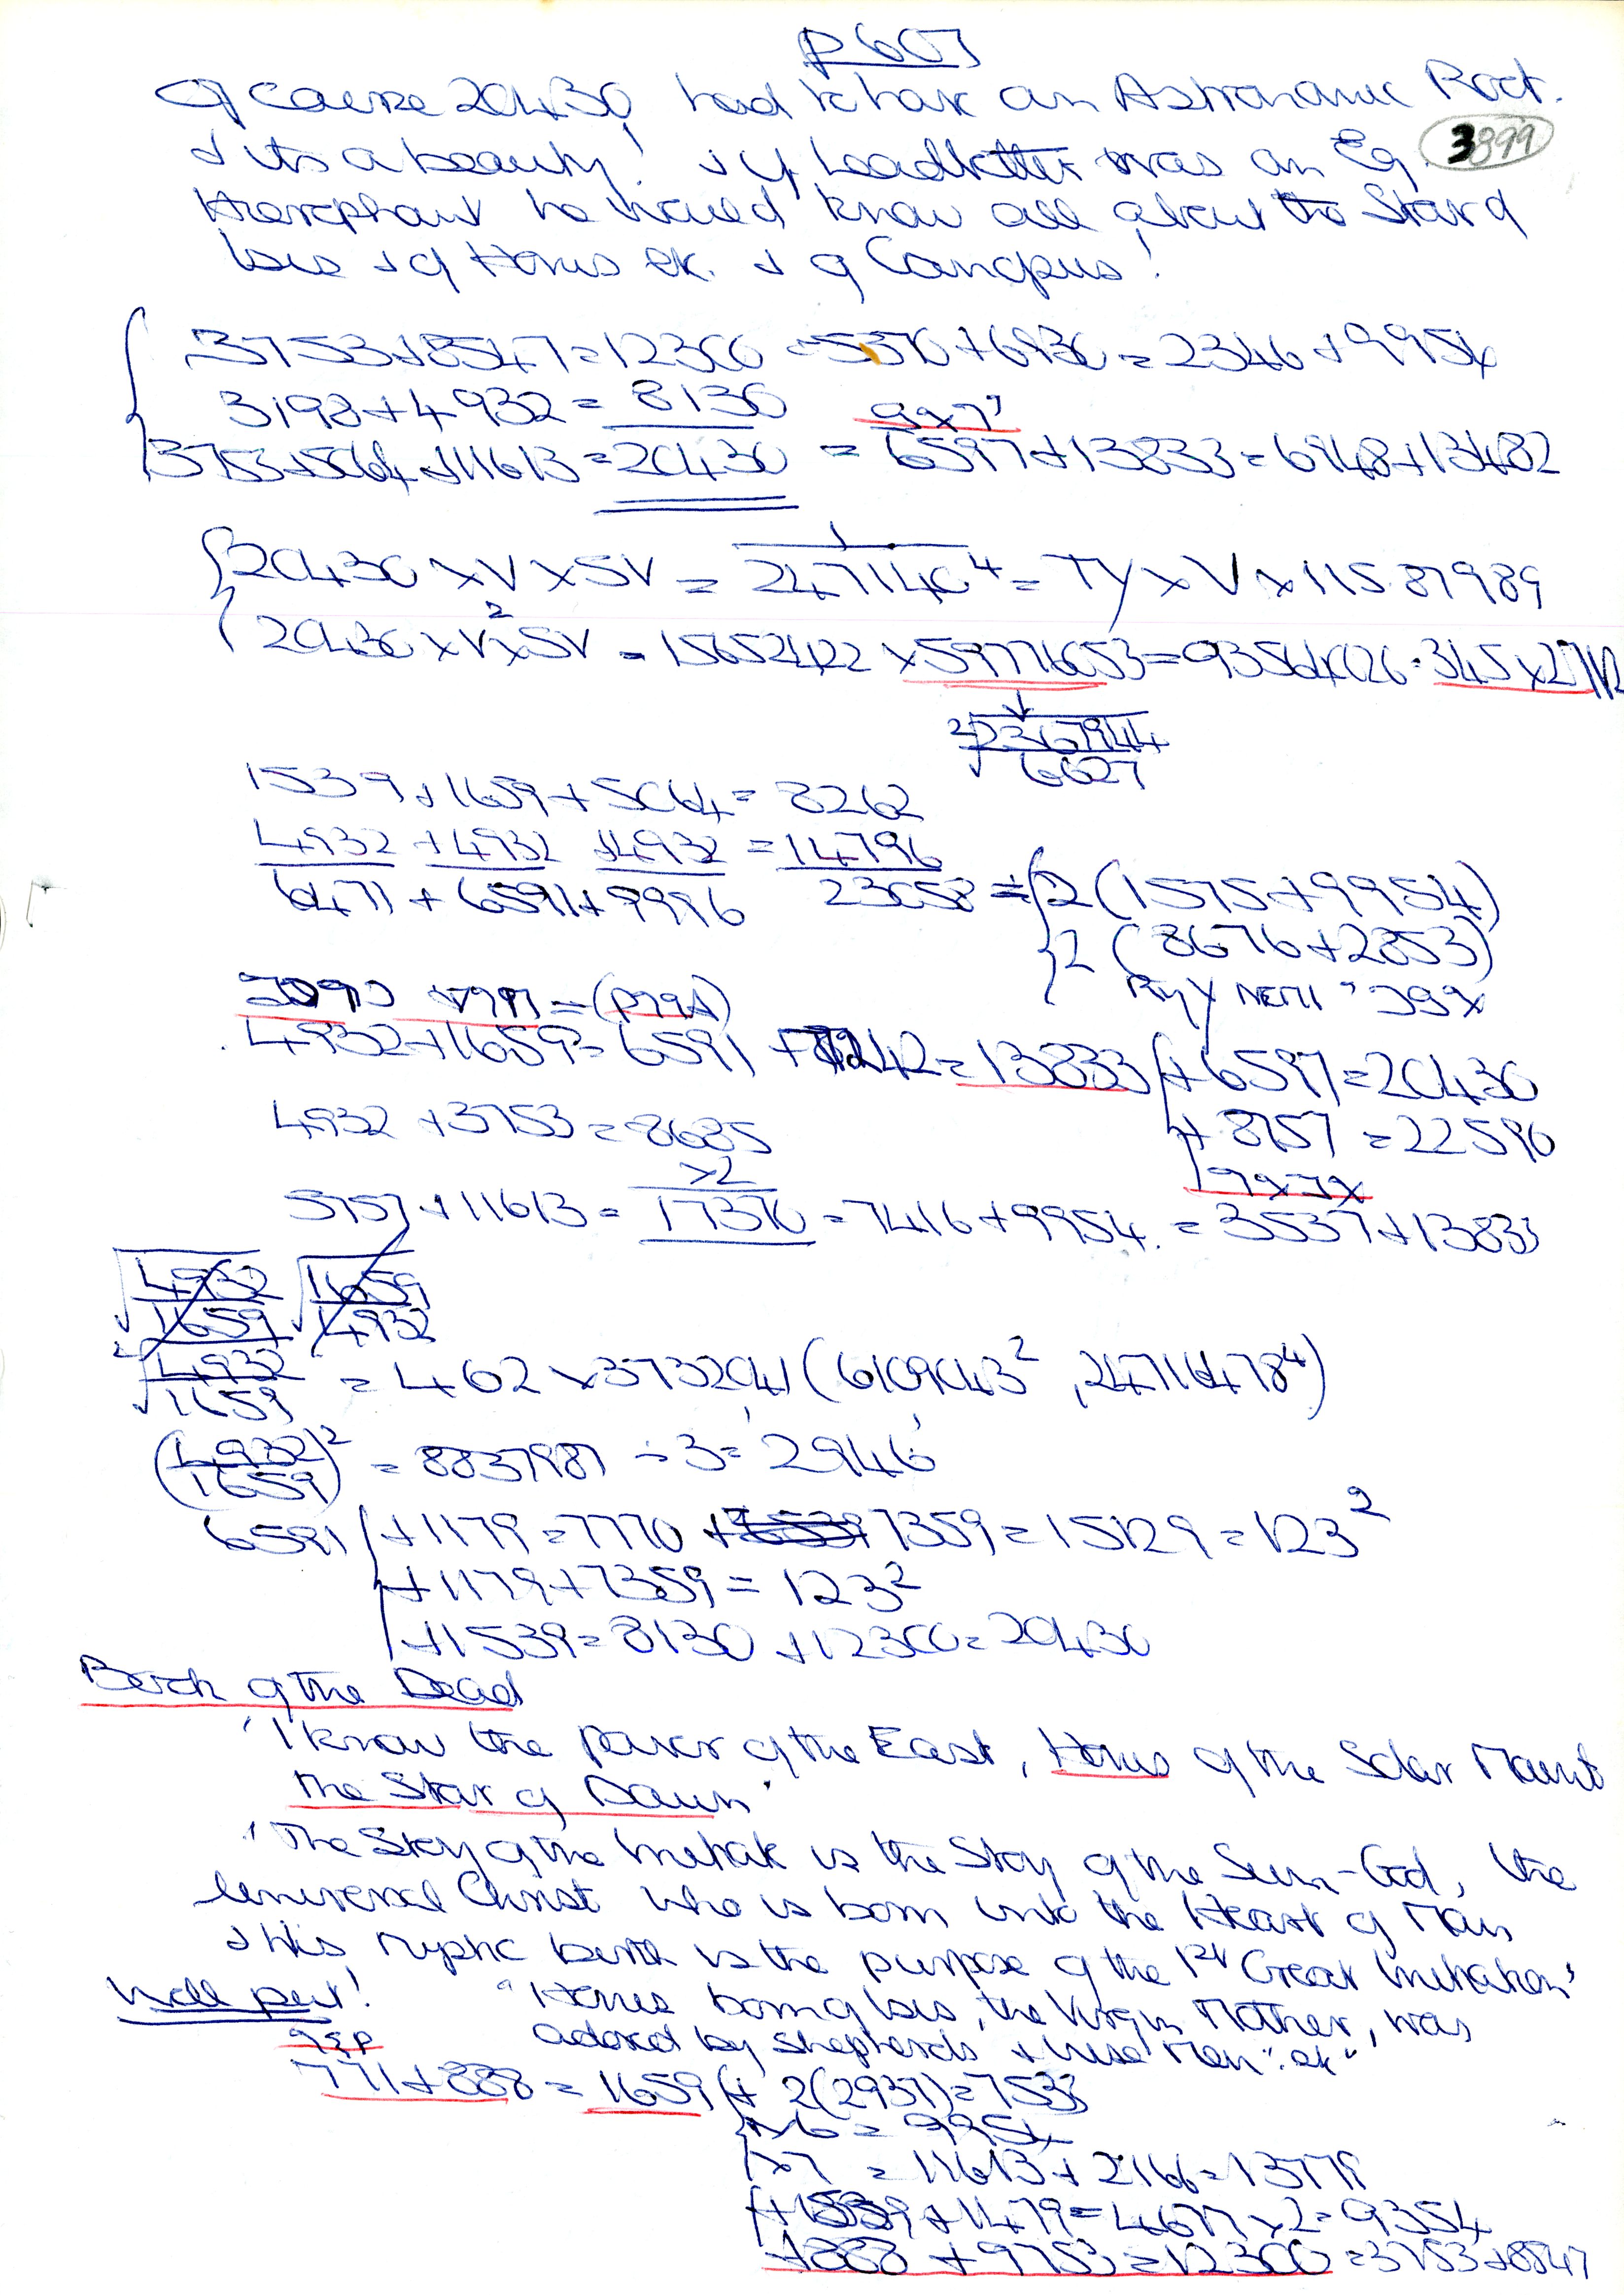 p607
Of course 20430 had to have an Astronomic Root.
3899
& its a beauty! & if Leadbetter was an Eg.
Hierophant he would know all about the Star of
Isis & of Horus etc. & of Canopus!
3753+8547=12300 =5370+6930=2346+9954
3198+4932=8130
9x7
3753+5064+11613=20430 = 6597+13833=6948+13482
20430 x V x SV = 1/247140⁴ = TY x V x 115.87989
20430 x V² x SV = 15652422 x 59771653=93564026.345 x 2
2367944
6627
1539+1659+5064=8262
4932 +4932 +4932 =14796
6471 + 6591+9996 23058 = 2(1575+9954)
2(8676+2853)
4932+1659=6591 +7242=13833 +6597=20430
4932 +3753=8685 +8757=22590
x2
5757+11613= 17370 =7416+9954. =3537+13833
4932 1659
1659 4932
4932
1659 = 462 x 373204 (6109043², 24716478⁴)
(4932/1659)² = 8837987 ÷3= 2946
6591 +1179=7770 + 7359=15129=123²
+1179+7359= 123²
+1539=8130 +12300=20430
Book of the Dead
'I know the power of the East, Horus of the Solar Mount
the Star of Dawn'
"The Story of the Initiate is the Story of the Sun-God, the
Universal Christ who is born into the Heart of Man
& this mystic birth is the purpose of the 1st Great Initiation"
Well put! "Horus born of Isis, the Virgin Mother, was
adored by shepherds & wise Men" etc"
771+888=1659 + 2(2937)=7533
x6 = 9954
x7 = 11613+2166=13779
+1539+1479=4677x2=9354
+888 +9753=12300=3753+8547